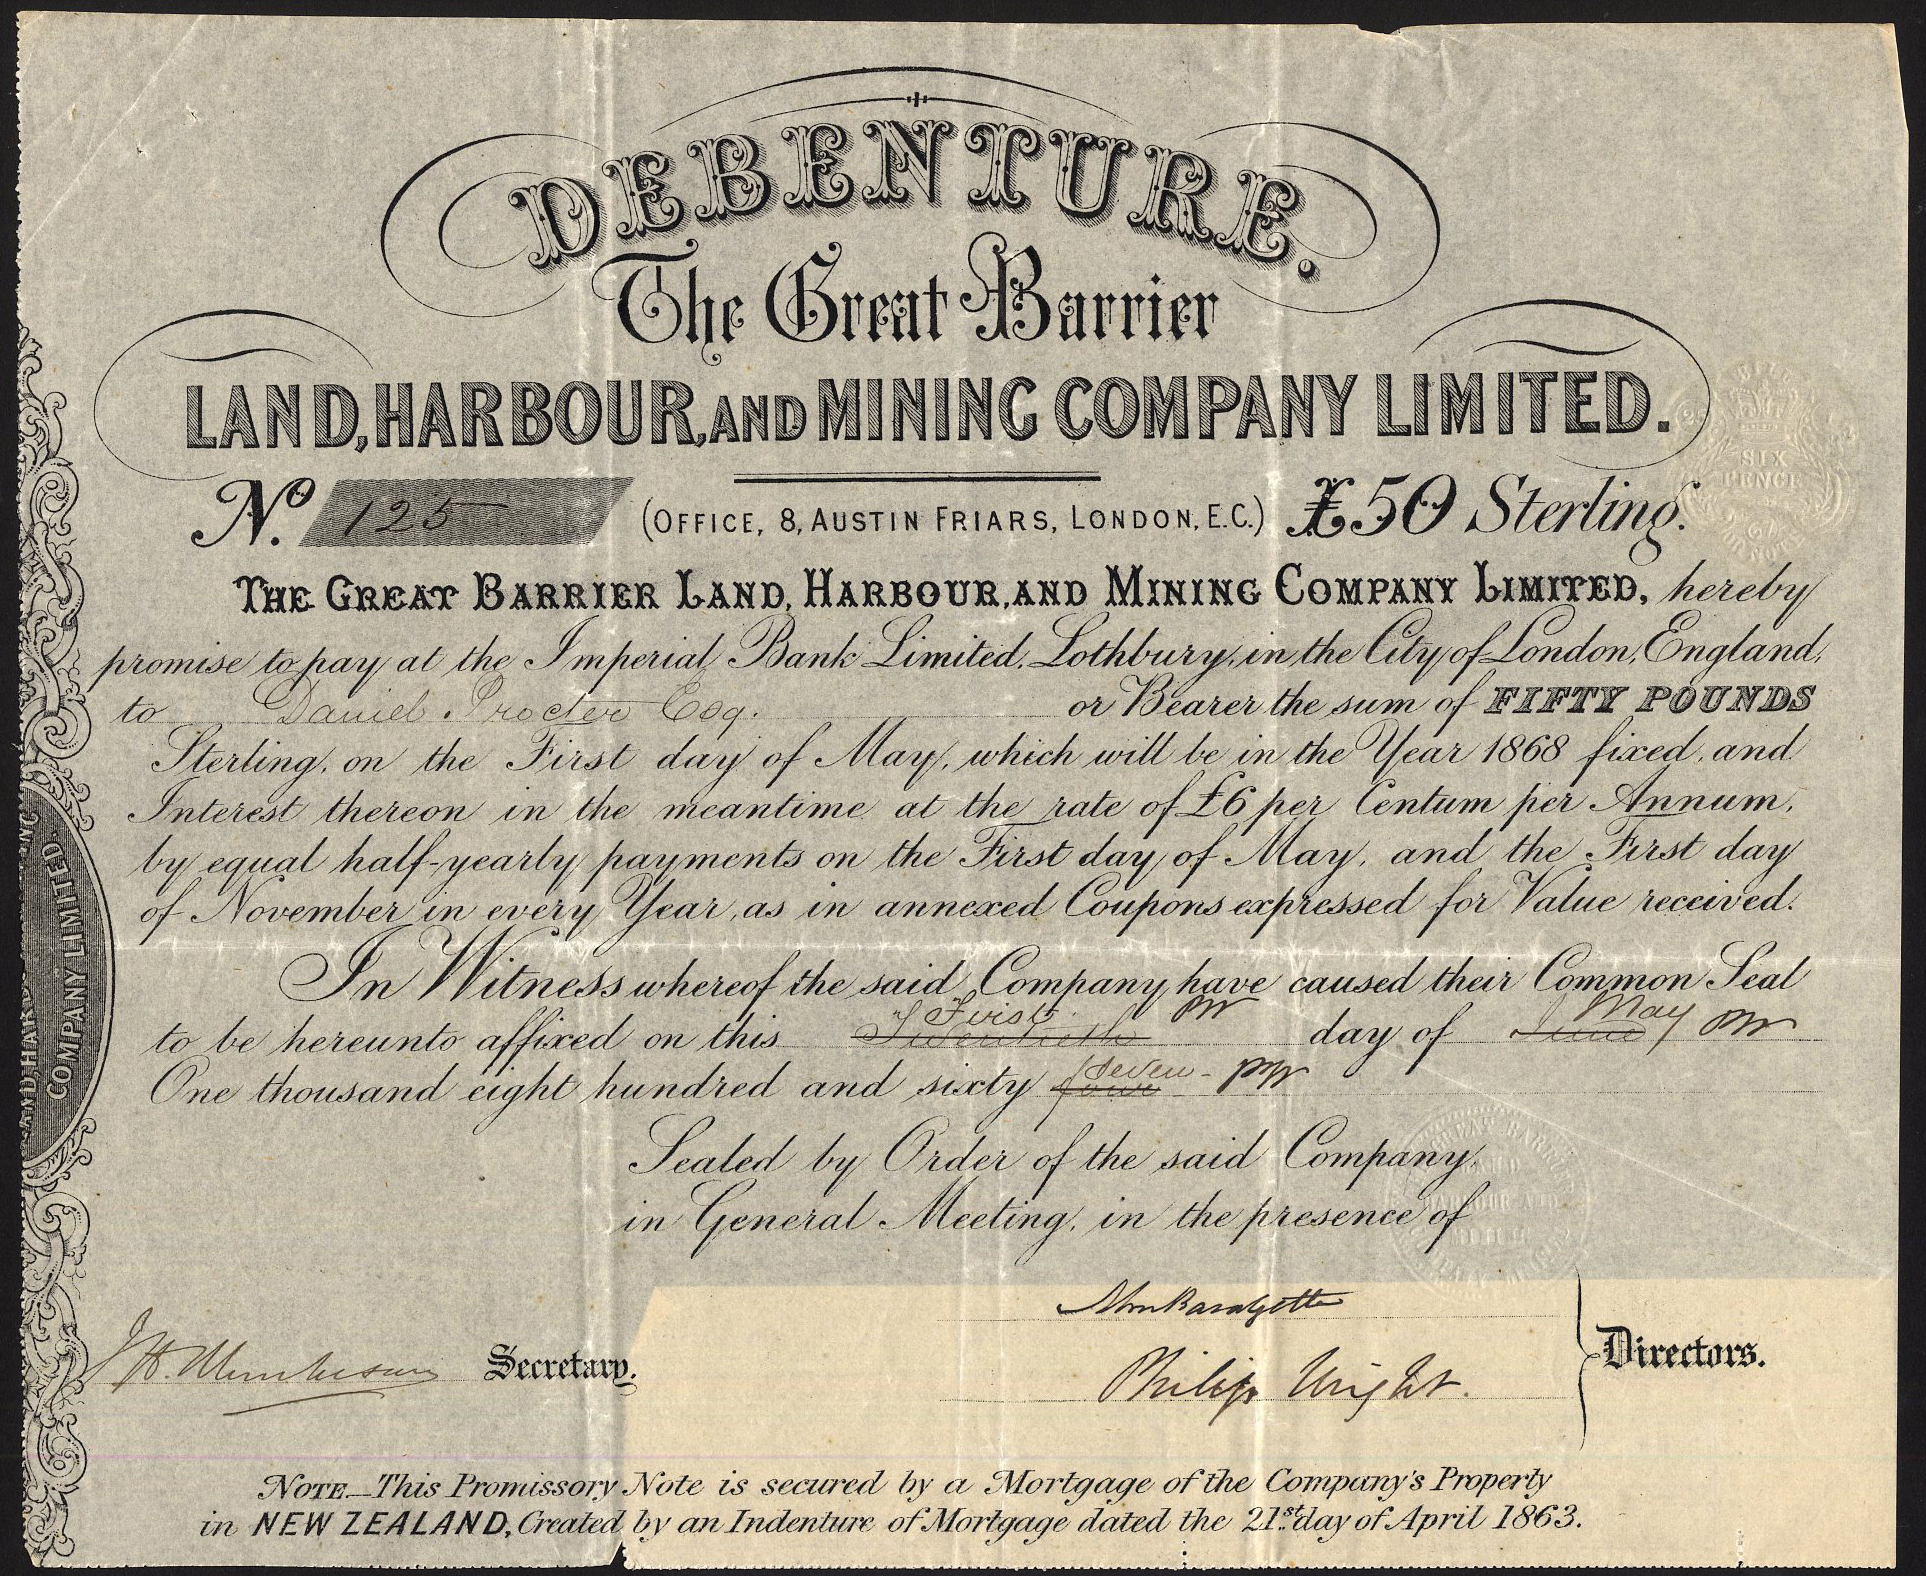 DEBENTURE.
The Great Barrier
LAND, HARBOUR, AND MINING COMPANY LIMITED.
No. 125 (OFFICE, 8, AUSTIN FRIARS, LONDON, E.C.) £50 Sterling.
SIX
PENCE
THE GREAT BARRIER LAND, HARBOUR, AND MINING COMPANY LIMITED, hereby
promise to pay at the Imperial Bank Limited, Lothbury, in the City of London, England,
to Daniel Procter Esq. or Bearer the sum of FIFTY POUNDS
Sterling, on the First day of May, which will be in the Year 1868 fixed, and
Interest thereon in the meantime at the rate of £6 per Centum per Annum,
by equal half-yearly payments on the First day of May, and the First day
of November in every Year, as in annexed Coupons expressed for Value received.
In Witness whereof the said Company have caused their Common Seal
to be hereunto affixed on this Twentieth First PW day of June May PW
One thousand eight hundred and sixty four seven PW
COMPANY LIMITED.
Sealed by Order of the said Company,
in General Meeting, in the presence of
Secretary.
Philip Wright.
Directors.
NOTE—This Promissory Note is secured by a Mortgage of the Company's Property
in NEW ZEALAND, Created by an Indenture of Mortgage dated the 21st day of April 1863.